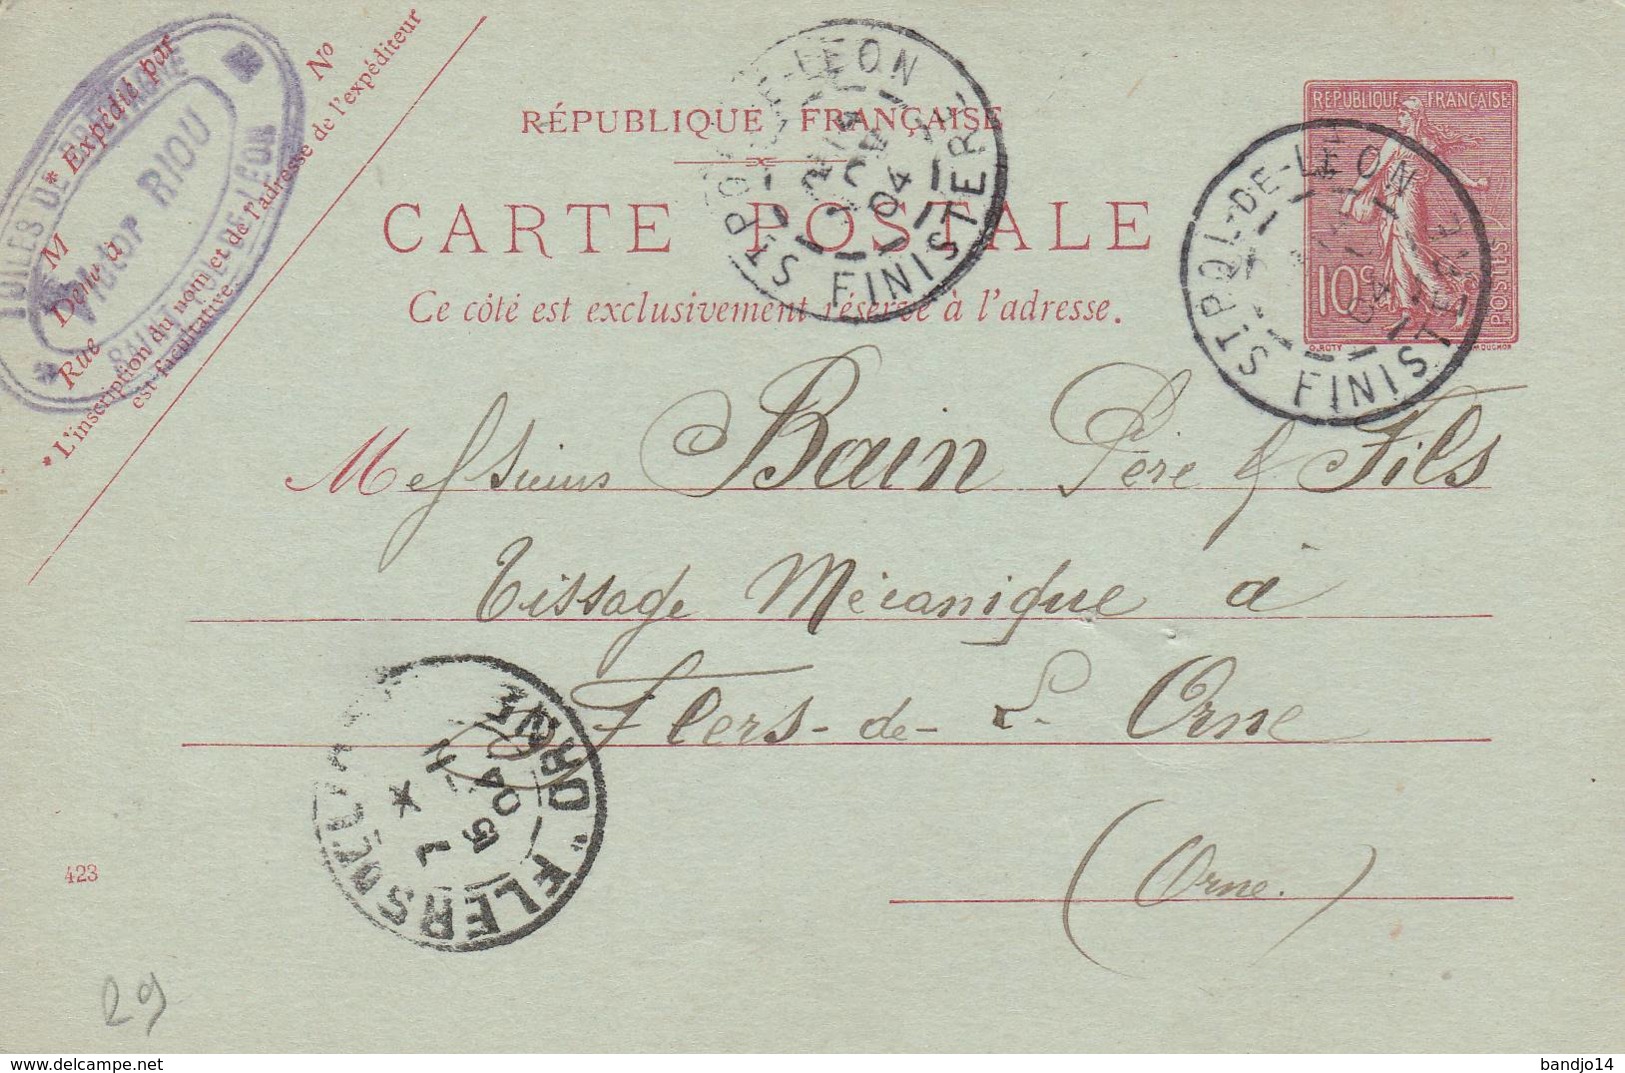 TOILES DE BRETAGNE
Victor RIOU
SAINT-POL-DE-LÉON
* Expédié par
M
Demt à
Rue
No
* L'inscription du nom et de l'adresse de l'expéditeur
est facultative.
RÉPUBLIQUE FRANÇAISE
CARTE POSTALE
Ce côté est exclusivement réservé à l'adresse.
ST POL-DE-LEON
04
FINISTERE
RÉPUBLIQUE FRANÇAISE
10c
POSTES
O.ROTY
MOUCHON
ST POL-DE-LEON
04
FINISTERE
Messieurs Bain Père & Fils
Tissage Mécanique à
Flers-de-L'Orne
(Orne.)
FLERS DE L'ORNE
7
5
04
"ORNE"
423
29
delcampe.net
bandjo14